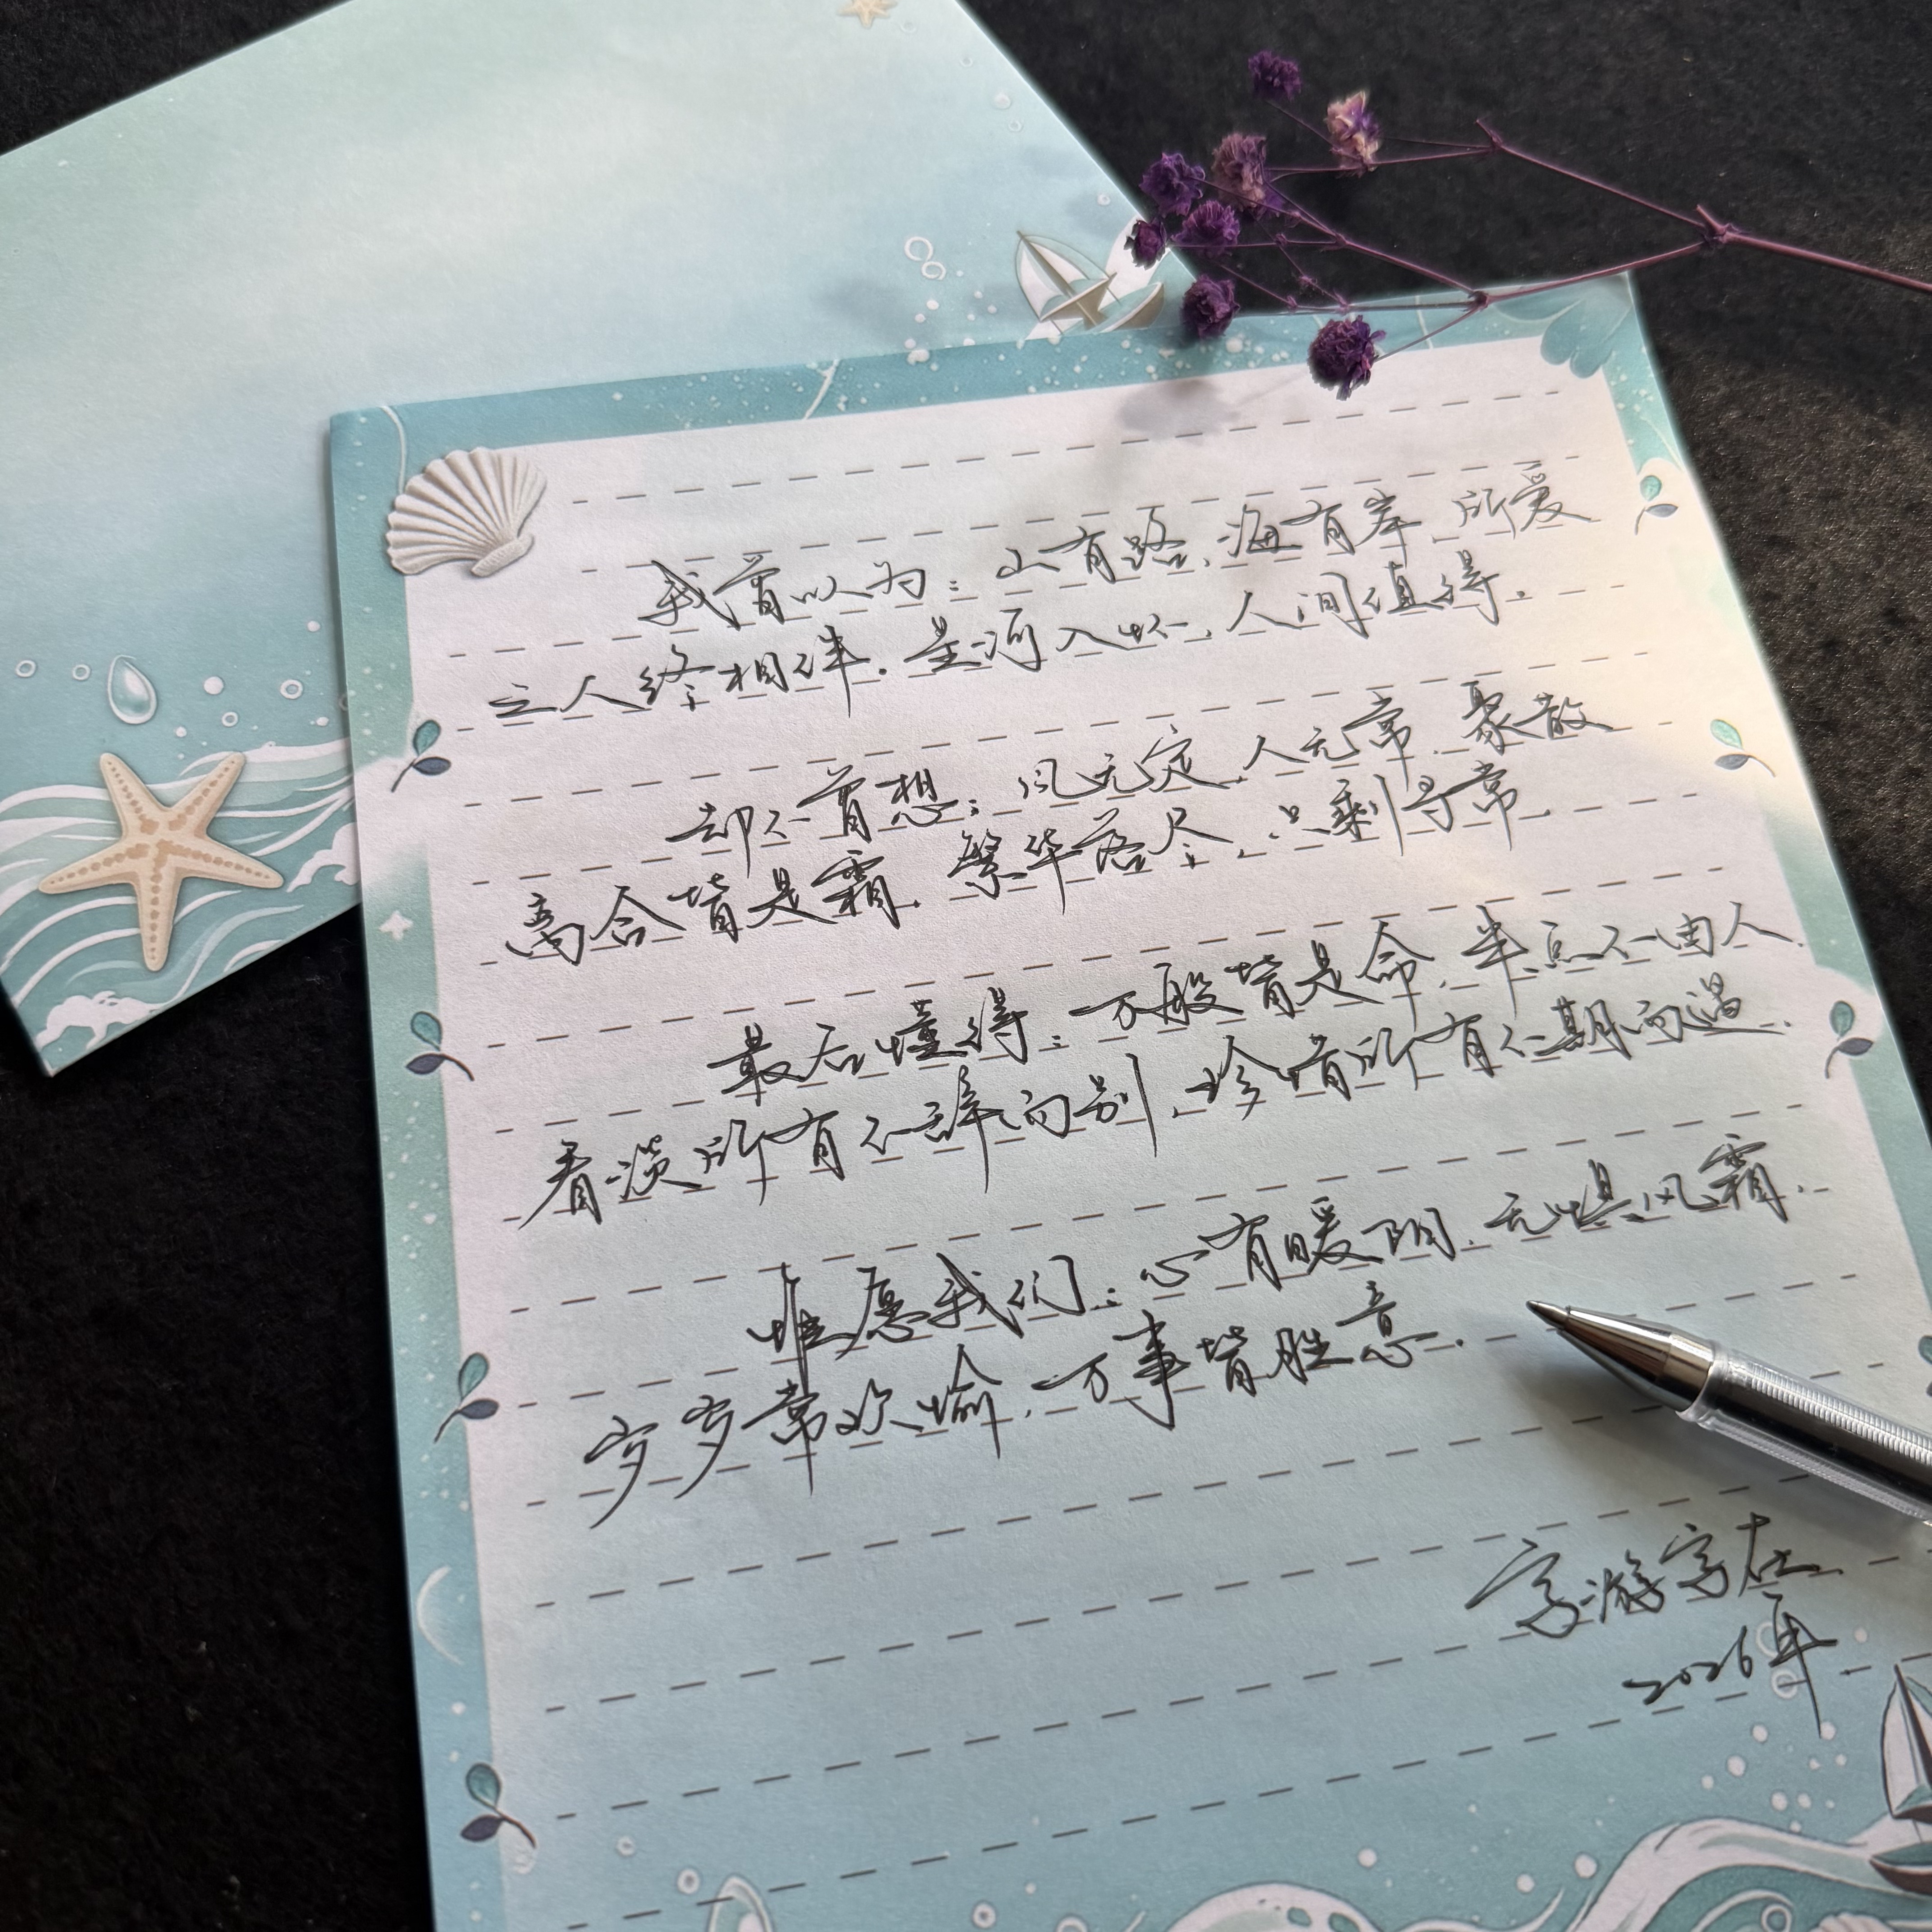 我曾以为：山有路，海有岸，所爱
之人终相伴。星河入怀，人间值得。
却不曾想：风无定，人无常，聚散
离合皆是霜。繁华落尽，只剩寻常。
最后懂得：万般皆是命，半点不由人，
看淡所有不辞而别，珍惜所有不期而遇。
惟愿我们：心有暖阳，无惧风霜，
岁岁常欢愉，万事皆胜意。
字游字在
2026年